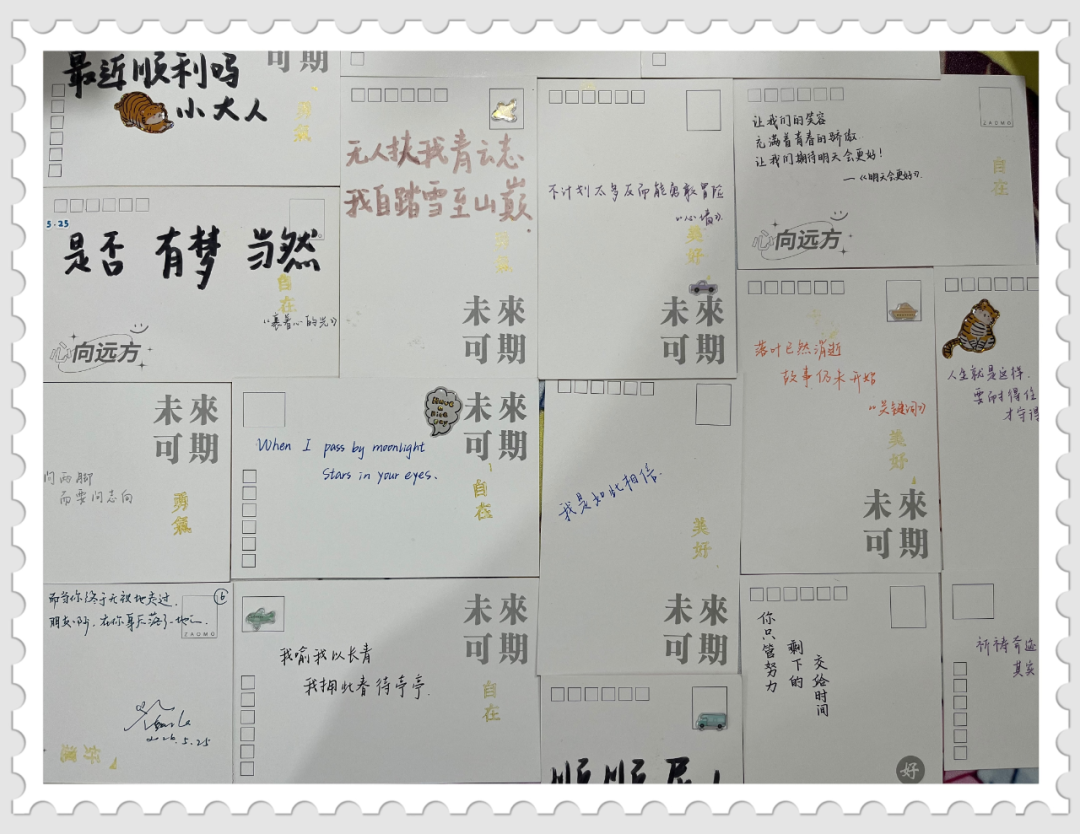 最近顺利吗
小大人
可期
勇氣
无人扶我青云志
我自踏雪至山巅.
自在
未來
可期
不计划太多反而能勇敢冒险
《心墙》
美好
未來
可期
让我们的笑容
充满着青春的骄傲
让我们期待明天会更好!
—《明天会更好》
ZAOMO
自在
心向远方
5.25
是否 有梦 当然
自在
《裹着心的光》
心向远方
落叶已然消逝
故事仍未开始
《关键词》
美好
未來
可期
人生就是这样.
要耐得住
才守得
未來
可期
问两脚
而要问志向
勇氣
Have a nice day
未來
可期
When I pass by moonlight
Stars in your eyes.
自在
我是如此相信.
美好
未來
可期
而当你终于无视地走过.
16
ZAOMO
2026.5.25
未來
可期
我喻我以长青
我拥此春待亭亭.
自在
顺顺
你只管努力
剩下的
交给时间
好
祈祷奇迹
其实